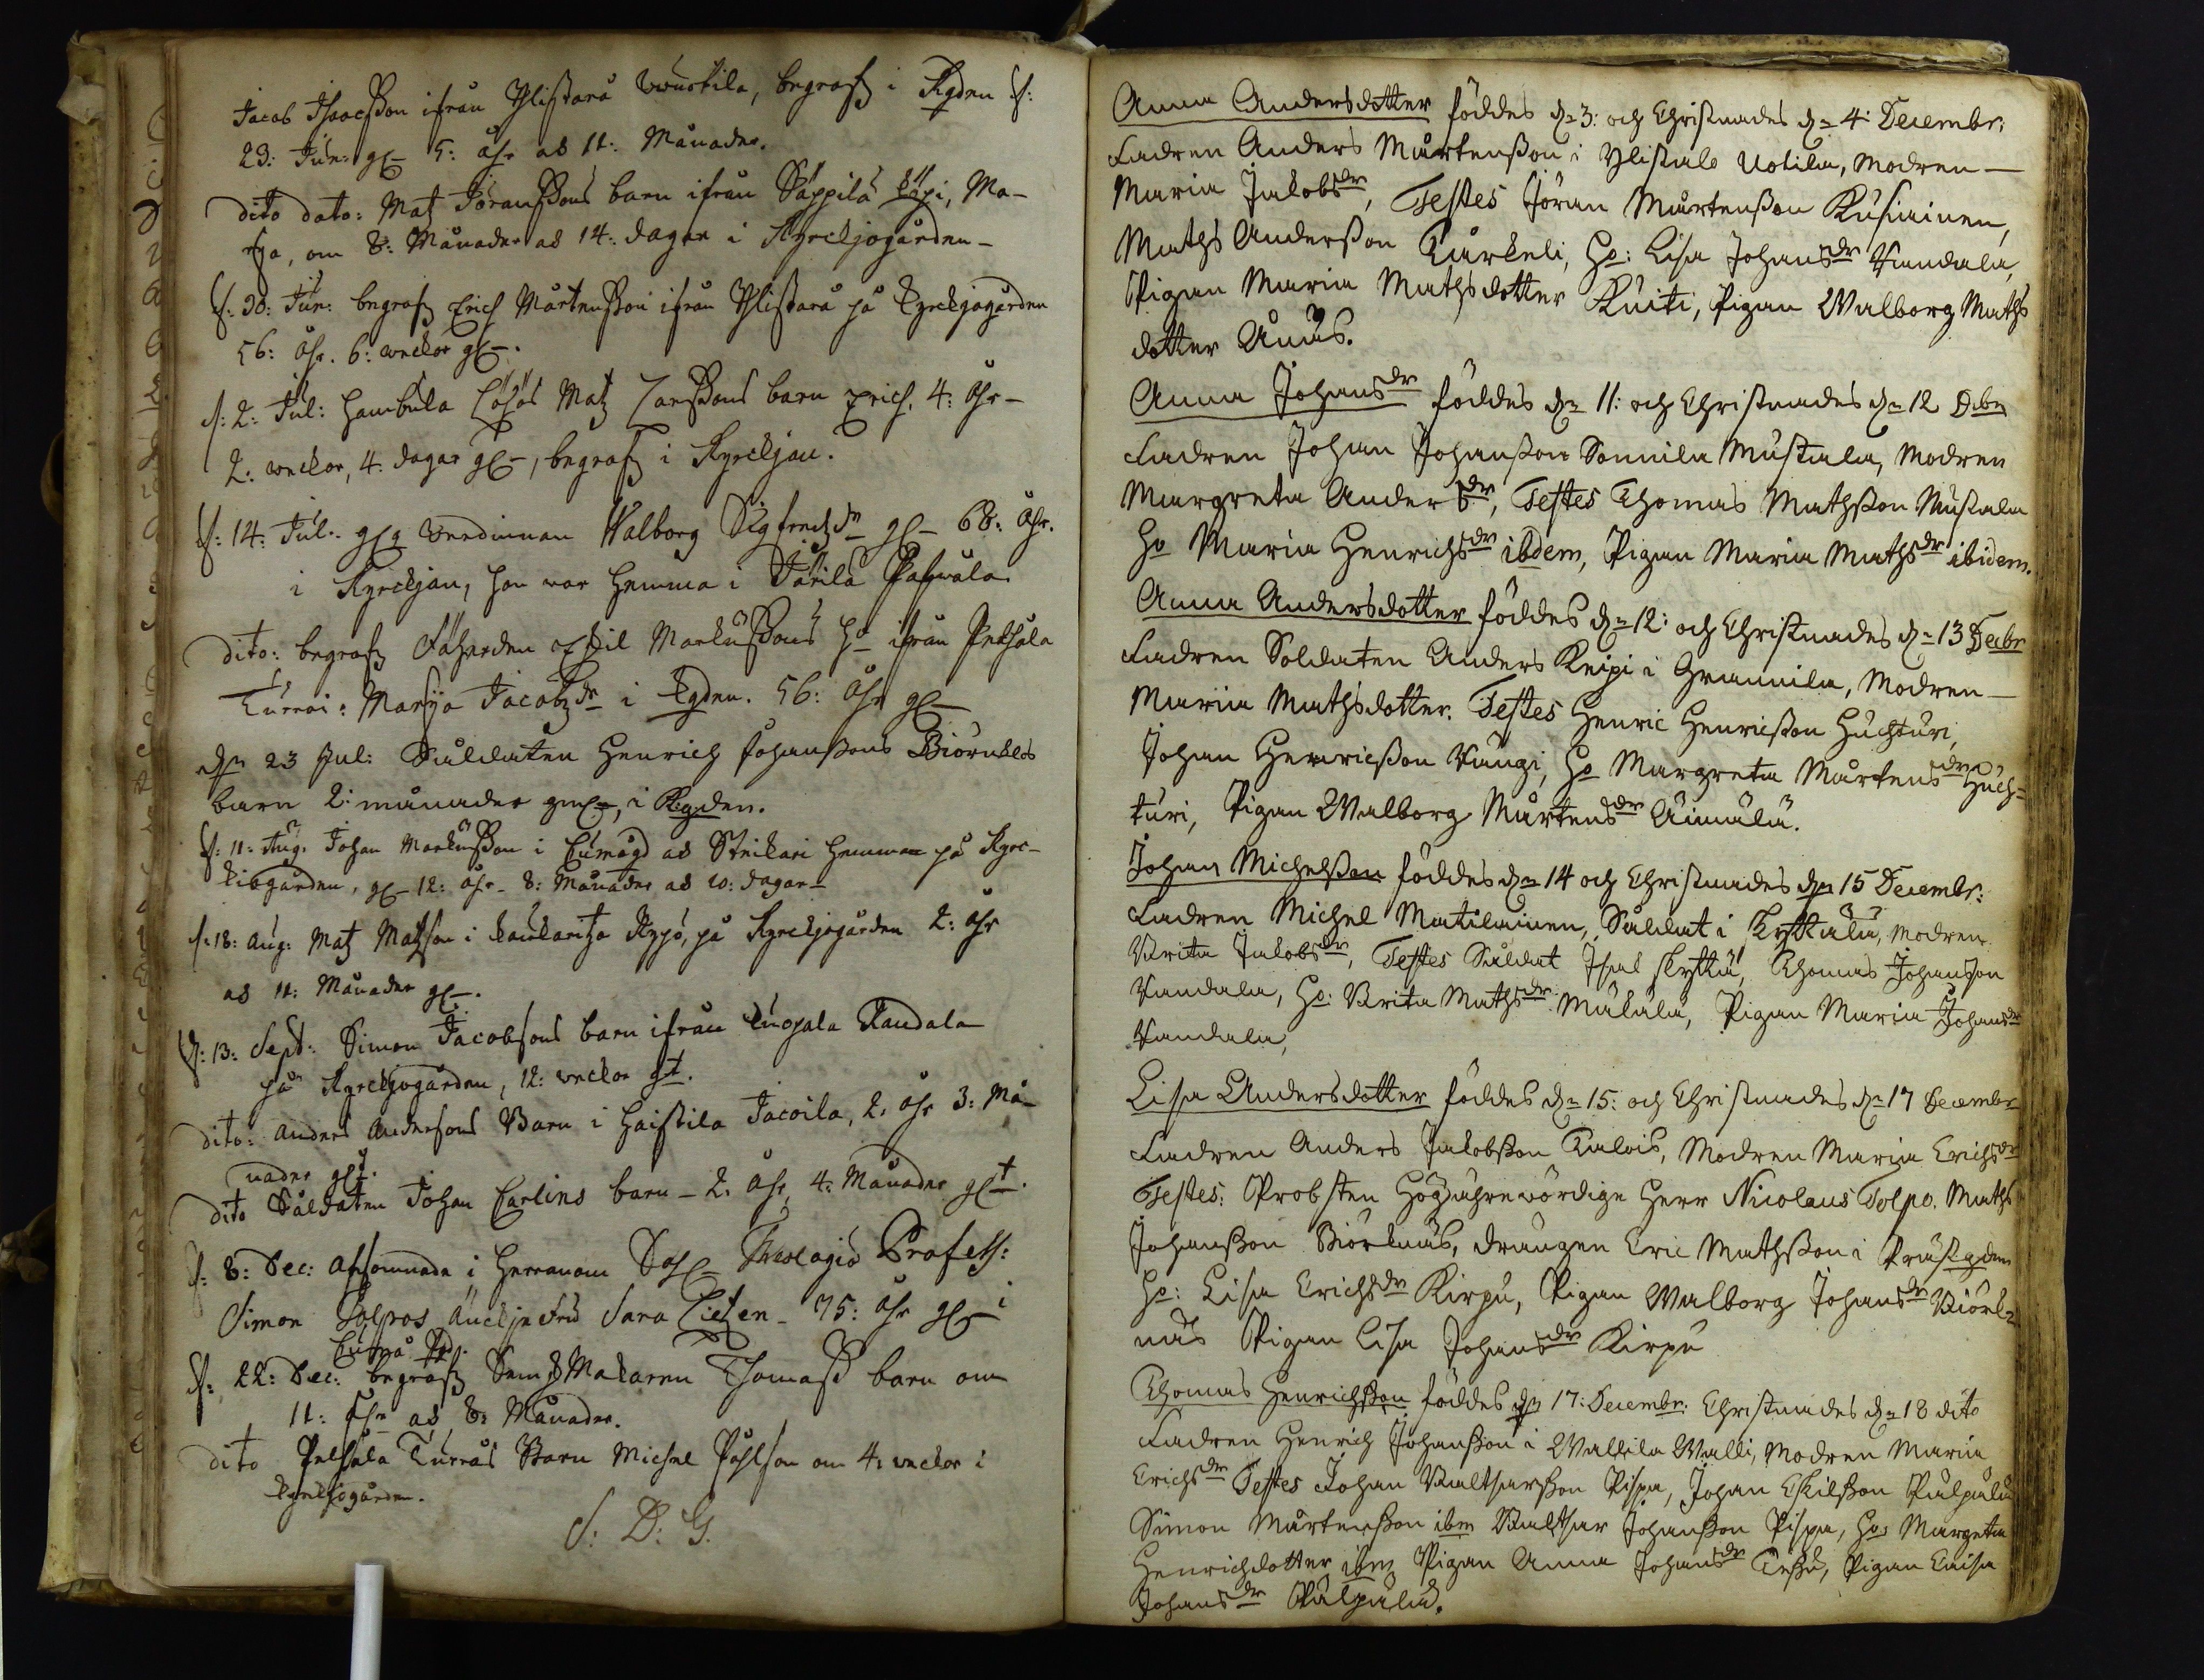 Jacob Isaacsson ifrån Ylistarå Wuotila, begrafz i Kgden d:
23: Jun: gl– 5: åhr ad 11: Månader.
dito dato: Matz Jöranssons barn ifrån Säppilä Käpi, Ma-
rja, om 8: Månader ad 14: dagar i Kyrckjogården–
d: 30: Jun: begrafz Erich Mårtensson ifrån Ylistarå på kyrckjogården
56: åhr. 6: weckor gl–.
d: 2: Jul: Hambula Matz Larssons barn Erich, 4: åhr–
2: weckor, 4: dagar gl–, begrafz i Kyrckjan.
d: 14: Jul: Werdinnan Walborg Sigfredzdr gl– 68: åhr.
i Kyrckjan, hon war hemma i Järilä
dito: begrafz Eskil Markussons ho ifrån Pelhåla
Turrai: Marja Jacobzdr i Kgden. 56: åhr gl–
dn 23 Jul: Suldaten Henrich Johanssons Biörnblos
barn 2: månader gml–, i Kgden.
d: 11: Aug: Johan Markusson i ad Strikari hemman på Kyrc-
kiogården, gl– 12: åhr– 8: Månader ad 10: dagar–
d: 18: Aug: Matz Matzson i kaukaritza Kypö, på Kyrckjogården 2: åhr
ad 11: Månader gl–.
d: 13: Sept: Simon Jacobsons barn ifrån Randala
på Kyrckjogården, 12: weckor glt.
dito: Anders Andersons Barn i Haistila Jacoila, 2: åhr 3: Må-
nader glt.
dito Såldaten Johan Carlins barn– 2: åhr, 4: Månader glt.
d: 8: Dec: afsomnade i Herranom Theologiæ Profess:
Simon Tolpos Änckje Fru Sara – 75: åhr gl– i
d: 22: Dec: begrafz Thomass barn om
11: åhr ad 8: Månader.
dito Pelhåla Turras Barn Michel Påhlson om 4: weckor i
kyrckjogården.
S: D: G.
Anna Andersdotter föddes dn 3: och Christnades dn 4: Decembr:
Fadren Anders Mårtensson i Ylistalo Uotila, Modren –
Maria Jakobsdr, Testes Jöran Mårtensson Kusiainen,
Maths Andersson Kårkeli, Ho: Lisa Johansdr Randala,
Pigan Maria Mathsdotter Kuiti, Pigan Walborg Maths
dotter Anus.
Anna Johansdr föddes dn 11: och Christnades dn 12 Dcbr
Fadren Johan Johansson Sonnila Mustala, Modren
Margreta Andersdr, Testes Thomas Mathsson Mustala
Ho Maria Henrichsdr ibdem, Pigan Maria Mathsdr ibidem.
Anna Andersdotter föddes dn 12: och Christnades dn 13 Decbr
Fadren Soldaten Anders Knipi i Grannila, Modren –
Maria Mathsdotter. Testes Henric Henricsson Huchturi,
Johan Henricsson Vångi, Ho Margreta Mårtensdr Huch-
turi, Pigan Walborg Mårtensdr Äimälä.
Johan Michelsson föddes dn 14 och Christnades dn 15 Decembr:
Fadren Michel Matilainen, Såldat i Kyttälä, Modren
Brita Jakobsdr, Testes Såldat Isak skyttä, Thomas Johansson
Randala, Ho: Brita Mathsdr Mäkälä, Pigan Maria Johansdr
Randala,
Lisa Andersdotter föddes dn 15: och Christnades dn 17 Decembr
Fadren Anders Jakobsson Talois, Modren Maria Erichsdr
Testes: Probsten Högährewördige Herr Nicolaus Tolpo. Maths
Johansson Biörknäs, drängen Eric Mathsson i Prästgden
Ho: Lisa Erichsdr Kirpu, Pigan Walborg Johansdr Biörk-
näs Pigan Lisa Johansdr Kirpu
Thomas Henrichsson föddes dn 17: Decembr: Christnades dn 18 dito
Fadren Henrich Johansson i Wallila Walli, Modren Maria
Erichsdr Testes Johan Balthsarsson Pispa, Johan Eskilsson Pulpula
Simon Mårtensson ibm Balthsar Johansson Pispa, Ho: Margreta
Henrichdotter ibm Pigan Anna Johansdr Pigan Caisa
Johansdr Pulpula.